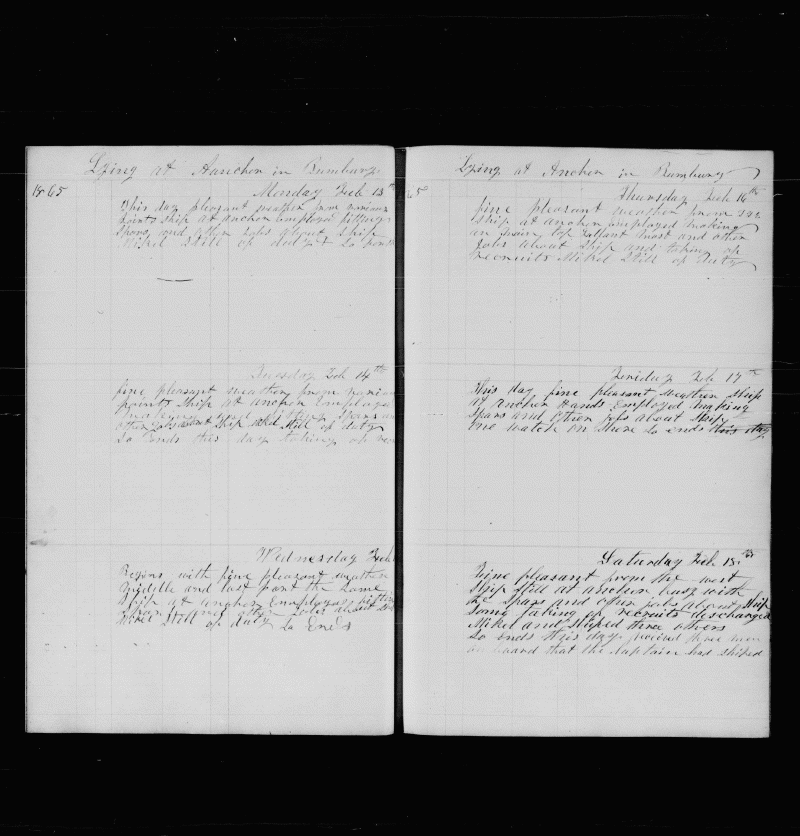 Lying at Aanchor in Bumbury
1865 Monday Feb 13th
this day pleasant weather from various
points ship at anchor Employed fitting
Spars and other jobs about Ship
Mikel Still of duty So ends
Tuesday Feb 14th
fine pleasant weather from variou
points Ship at anchor Employed
making and fitting Spars an
other jobs about Ship Mikel Still of duty
So Ends this day taking of rec
Wednesday Feb
Begins with fine pleasant weather
Middle and last part the Same
Ship at anchor Employed fitting
Spars and other jobs about
Mikel Still of duty So Ends
Lying at Anchor in Bumbury
65 Thursday Feb 16th
fine pleasant weather from
Ship at anchor Employed making
an main top gallant mast and other
jobs about Ship and taking of
recruits Mikel Still of duty
Friday Feb 17th
this day fine pleasant weather Ship
at anchor hands Employed making
Spars and other jobs about Ship
one watch on Shore So ends this day
Saturday Feb 18th
Fine pleasant from the west
Ship Still at anchor busy with
the Spars and other jobs about Ship
Some taking of recruits discharged
Mikel and Shiped three others
So Ends this day three men
on board that the Captain had shiped